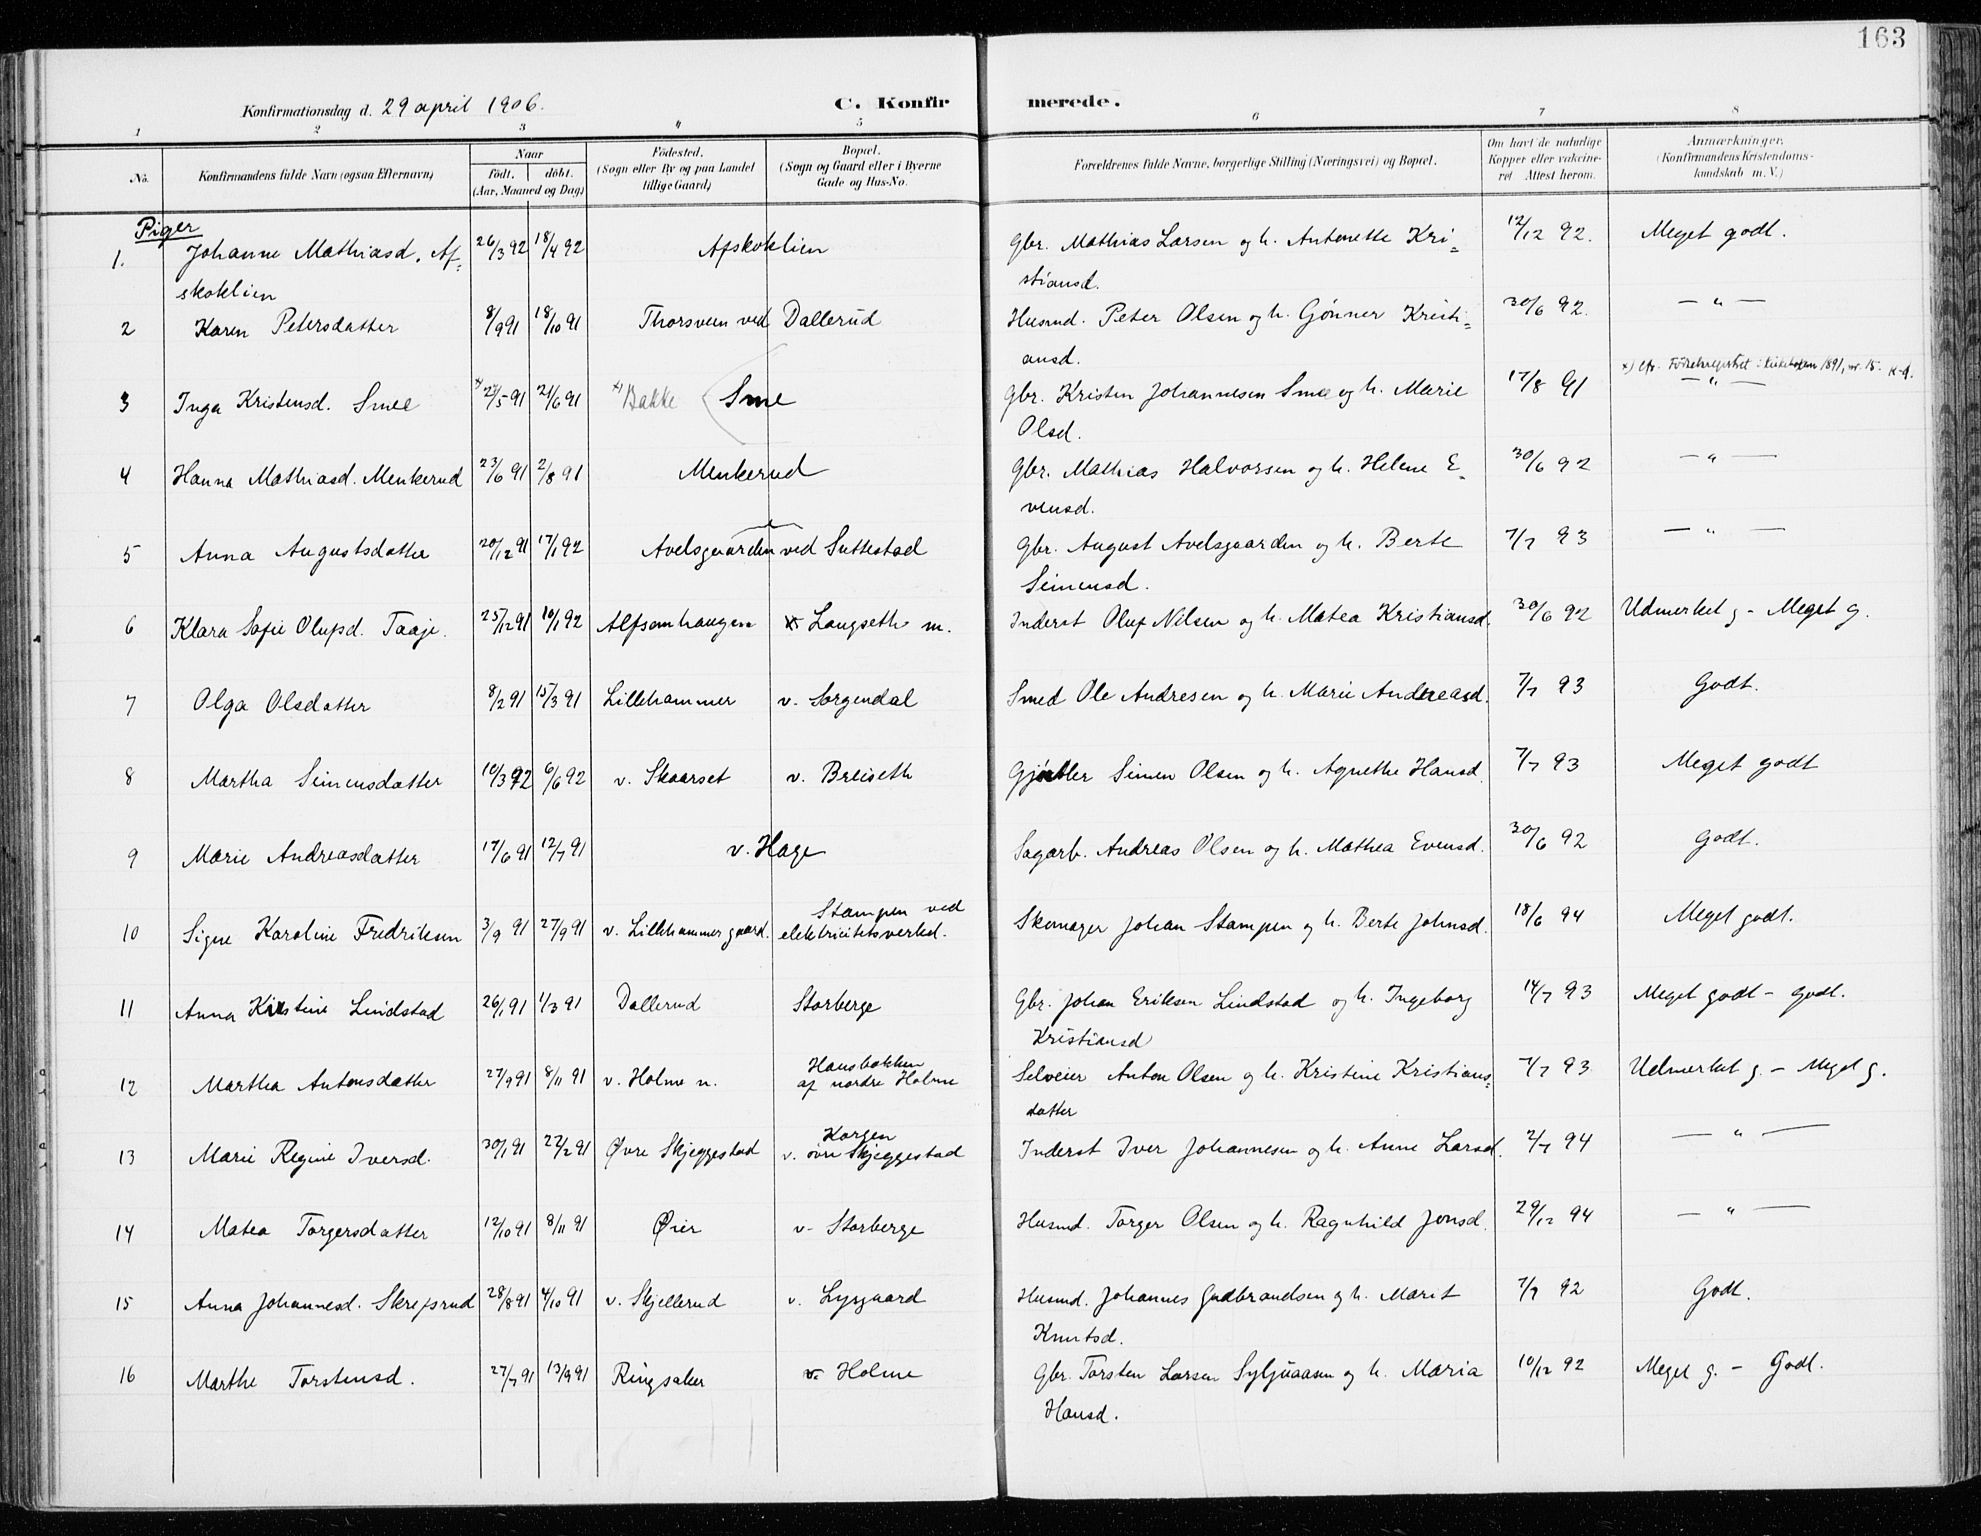 163
Konfirmationsdag d. 29 april 1906.
C. Konfir merede.
1 2 3 4 5 6 7 8
No. Konfirmandens fulde Navn (ogsaa Efternavn) Naar Födt. döbt. (Aar, Maaned og Dag) Födested. (Sogn eller By og paa Landet tillige Gaard) Bopæl. (Sogn og Gaard eller i Byerne Gade og Hus-No. Forældrenes fulde Navne, borgerlige Stilling (Næringsvei) og Bopæl. Om havt de naturlige Kopper eller vakcineret Attest herom. Anmærkninger. (Konfirmandens Kristendomskundskab m. V.)
Piger
1. Johanne Mathiasd. Af- 26/3 92 18/4 92 Afskoklien Gbr. Mathias Larsen og h. Antonette Kri- 12/12 92. Meget godt.
skoklien stiansd.
2 Karen Petersdatter 8/9 91 18/10 91 Thorsveen ved Dallerud Husmd. Peter Olsen og h. Gønner Kristi- 30/6 92. — " —
ansd.
x) cfr. Födselsregistret i kirkebogen 1891, nr. 15.
3 Inga Kristensd. Smee x) 21/6 91 x) Bakke Sme Gbr. Kristen Johannesen Smee og h. Marie 17/8 91 — " —
Olsd.
4 Hanna Mathiasd. Menkerud 23/6 91 2/8 91 Menkerud Gbr. Mathias Halvorsen og h. Helene E- 30/6 92 — " —
vensd.
5 Anna Augustsdatter 20/12 91 17/1 92 Avelsgaarden ved Suttestad Gbr. August Avelsgaarden og h. Berte 7/7 93 — " —
Simensd.
6 Klara Sofie Olufsd. Taaje. 25/12 91 10/1 92 Alfsomhaugen Langseth m. Inderst Oluf Nilsen og h. Matea Kristiansd. 30/6 92 Udmerket g - Meget g.
7 Olga Olsdatter 8/2 91 15/3 91 Lillehammer v. Sorgendal Smed Ole Andresen og h. Marie Andreasd. 7/7 93 Godt.
8 Martha Simensdatter 10/3 92 6/6 92 v. Skaarset v. Breiseth Gjørtler Simen Olsen og h. Agnethe Hansd. 7/7 93 Meget godt
9 Marie Andreasdatter 17/6 91 12/7 91 v. Hage Sagarb. Andreas Olsen og h. Mathea Evensd. 30/6 92 Godt.
Stampen ved
10 Signe Karoline Fredriksen 3/9 91 27/9 91 v. Lillehammer gaard. elektricitetsverked. Skomager Johan Stampen og h. Berte Johnsd. 18/6 94 Meget godt.
11 Anna Kristine Lindstad 26/1 91 1/3 91 Dallerud Storberge Gbr. Johan Eriksen Lindstad og h. Ingeborg 14/7 93 Meget godt - Godt.
Kristiansd
Hansbakken
12 Martha Antonsdatter 27/9 91 8/11 91 v. Holme n. af nordre Holme Selveier Anton Olsen og h. Kristine Kristians- 7/7 93 Udmerket g. - Meget g.
datter
Korgen
13 Marie Regine Iversd. 30/1 91 22/2 91 Øvre Skjeggestad v. øvre Skjeggestad Inderst Iver Johannesen og h. Anne Larsd. 2/7 94 — " —
14 Matea Torgersdatter 12/10 91 8/11 91 Øier v. Storberge Husmd. Torger Olsen og h. Ragnhild Jonsd. 29/12 94 — " —
15 Anna Johannesd. Skrefsrud 28/8 91 4/10 91 v. Skjellerud v. Lysgaard Husmd. Johannes Gudbrandsen og h. Marit 7/7 92 Godt.
Knutsd.
16 Marthe Torstensd. 27/7 91 13/9 91 Ringsaker v. Holme Gbr. Torsten Larsen Syljuaasen og h. Maria 10/12 92 Meget g. - Godt.
Hansd.